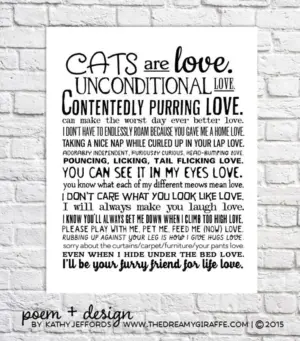 CATS are love.
UNCONDITIONAL LOVE.
CONTENTEDLY PURRING LOVE.
can make the worst day ever better love.
I DON'T HAVE TO ENDLESSLY ROAM BECAUSE YOU GAVE ME A HOME LOVE.
TAKING A NICE NAP WHILE CURLED UP IN YOUR LAP LOVE.
ADORABLY INDEPENDENT, FURIOUSLY CURIOUS, HEAD-BUMPING LOVE.
POUNCING, LICKING, TAIL FLICKING LOVE.
YOU CAN SEE IT IN MY EYES LOVE.
you know what each of my different meows mean love.
I DON'T CARE WHAT YOU LOOK LIKE LOVE.
I will always make you laugh love.
I KNOW YOU'LL ALWAYS GET ME DOWN WHEN I CLIMB TOO HIGH LOVE.
PLEASE PLAY WITH ME, PET ME, FEED ME (NOW) LOVE.
RUBBING UP AGAINST YOUR LEG IS HOW I GIVE HUGS LOVE.
sorry about the curtains/carpet/furniture/your pants love.
EVEN WHEN I HIDE UNDER THE BED LOVE.
I'll be your furry friend for life love.
poem + design
BY KATHY JEFFORDS - WWW.THEDREAMYGIRAFFE.COM | © 2015